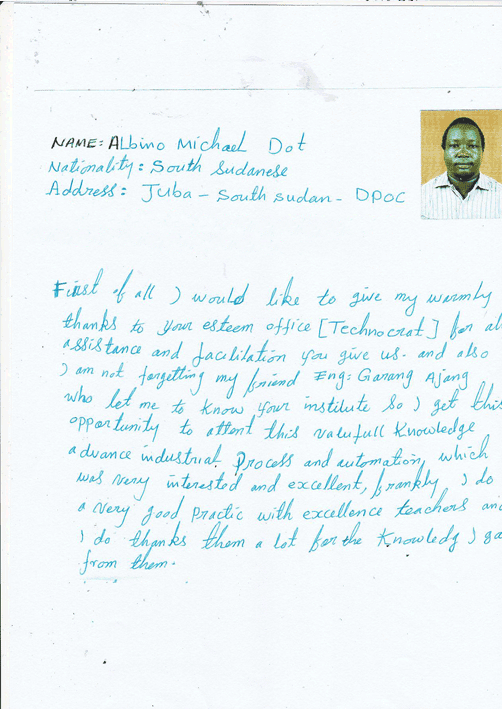 NAME: ALbino Michael Dot
Nationality: South Sudanese
Address: Juba - South sudan - DPOC
First of all I would like to give my warmly
thanks to your esteem office [Technocrat] for al
assistance and facilitation you give us. and also
I am not forgetting my friend Eng: Garang Ajang
who let me to know your institute so I get this
opportunity to attent this valuefull Knowledge
advance industrial Process and automation, which
was very interested and excellent, frankly, I do
a very good Practic with excellence teachers and
I do thanks them a lot for the Knowledg I ga
from them.